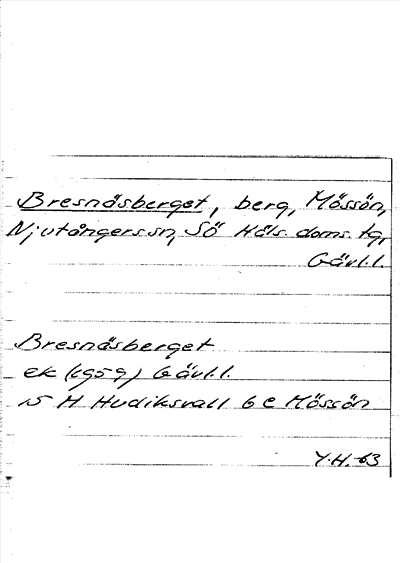 Bresnäsberget, berg, Mössön,
Njutångers sn, Sö Häls. doms. tg,
Gävl.l.
Bresnäsberget
ek (1959) Gävl.l.
15 H Hudiksvall 6 c Mössön
Y.H.-63